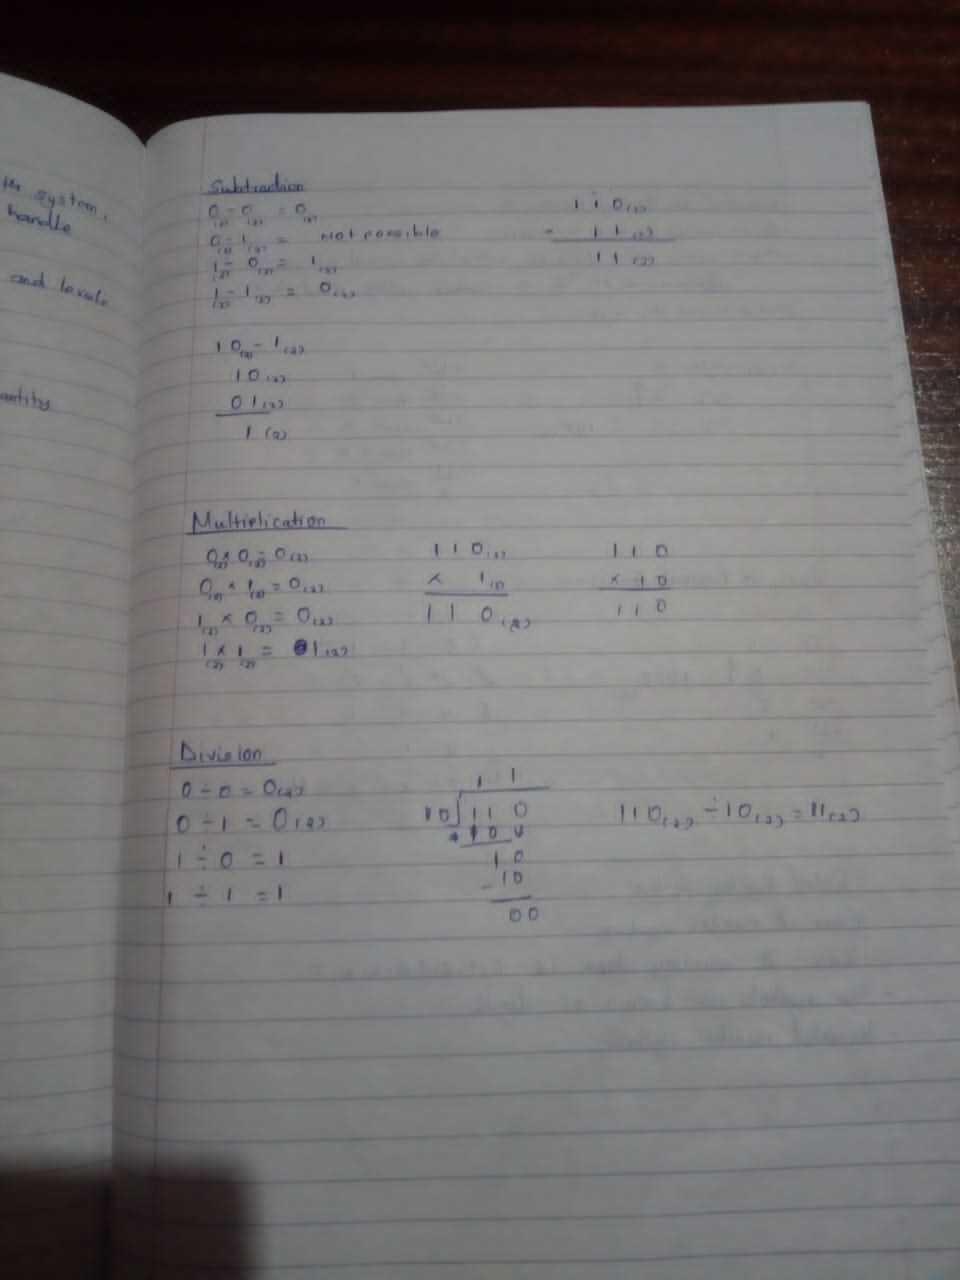 the system,
handle
and levels
Subtraction
0(2) - 0(2) = 0(2)
0(2) - 1(2) = Not possible
1(2) - 0(2) = 1(2)
1(2) - 1(2) = 0(2)
110(2)
- 11(2)
11(2)
10(2) - 1(2)
10(2)
01(2)
1(2)
Multiplication
0(2) x 0(2) = 0(2)
0(2) x 1(2) = 0(2)
1(2) x 0(2) = 0(2)
1(2) x 1(2) = 1(2)
110(2)
x 1(2)
110(2)
110
x 10
110
Division
0 ÷ 0 = 0(2)
0 ÷ 1 = 0(2)
1 ÷ 0 = 1
1 ÷ 1 = 1
11
10)110
10
10
- 10
00
110(2) ÷ 10(2) = 11(2)